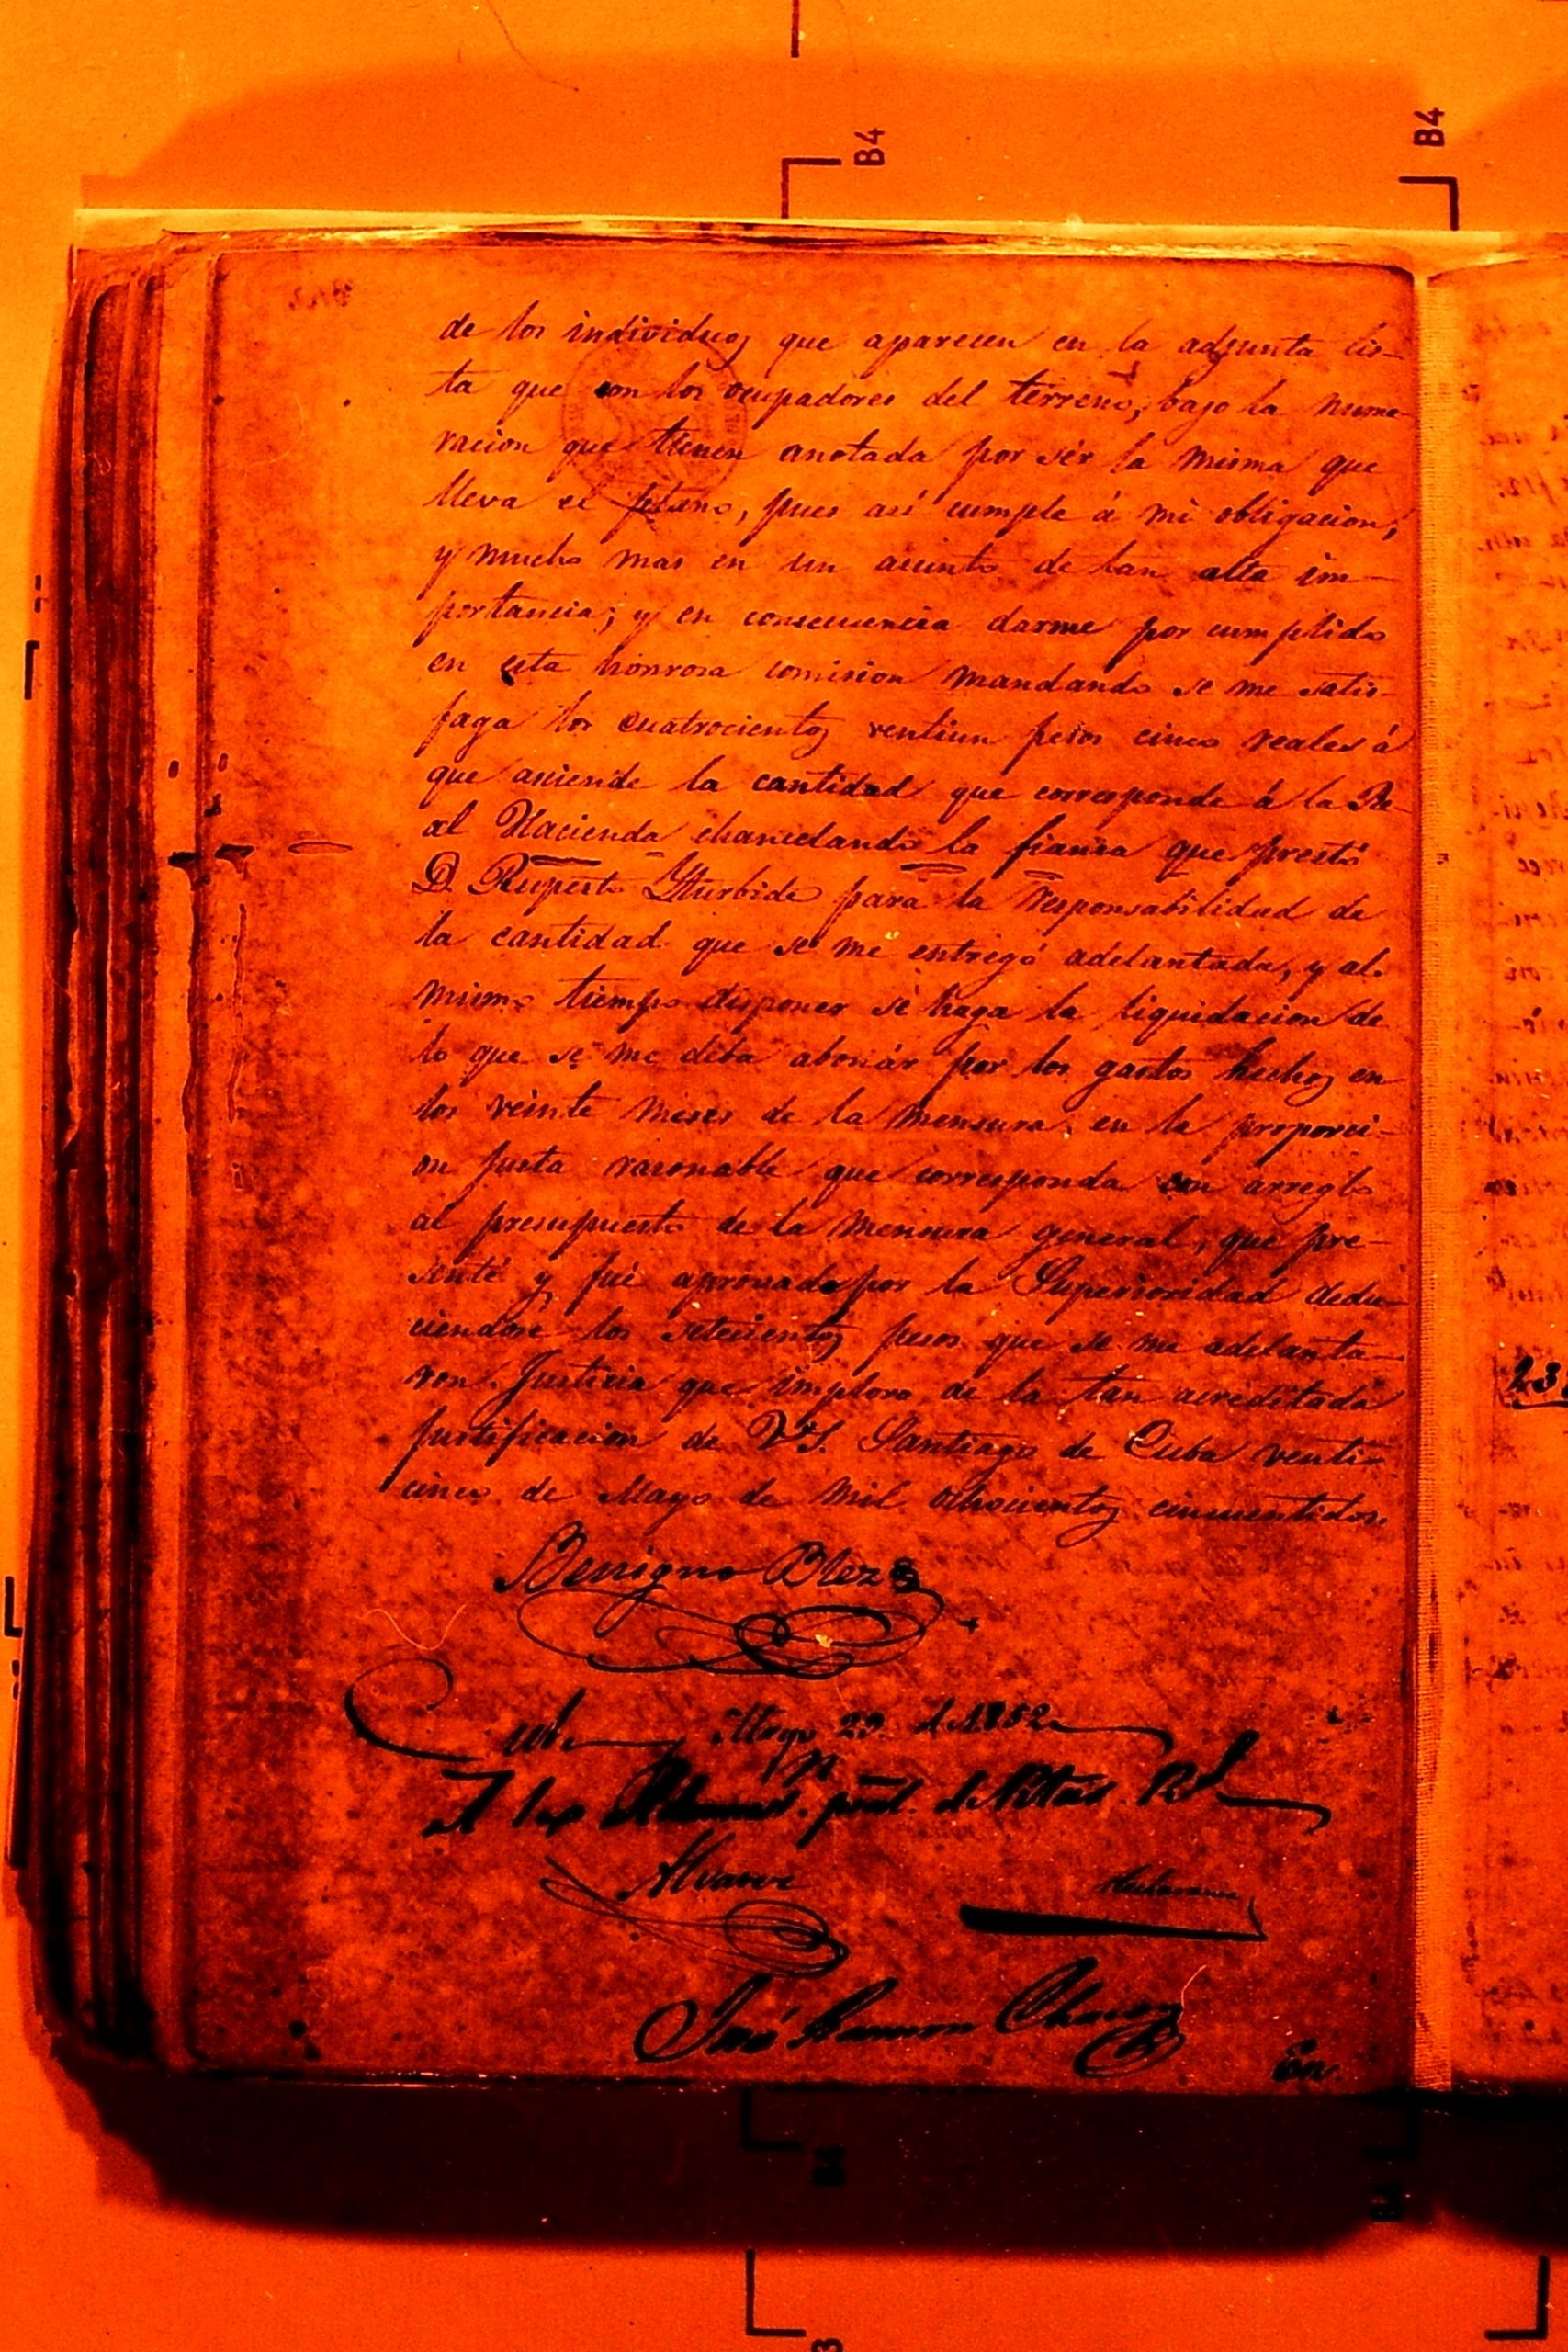 B4
B4
de los individuos que aparecen en la adjunta lis-
ta que son los ocupadores del terreno, bajo la nume-
racion que tienen anotada por sér la misma que
lleva el plano, pues asi cumple á mi obligacion,
y mucho mas en un asunto de tan alta im-
portancia; y en consecuencia darme por cumplido
en esta honrosa comision mandando se me satis-
faga los cuatrocientos ventiun pesos cinco reales á
que asciende la cantidad que corresponde á la Re-
al Hacienda chancelando la fianza que prestó
D. Ruperto Yturbide para la responsabilidad de
la cantidad que se me entregó adelantada, y al
mismo tiempo disponer se haga la liquidacion de
lo que se me deba abonár por los gastos hechos en
los veinte meses de la mensura, en la proporci-
on justa rasonable que corresponda con arreglo
al presupuesto de la mensura general, que pre-
senté y fué aprovado por la Superioridad dedu-
ciendose los setecientos pesos que se me adelanta-
ron. Justicia que imploro de la tan acreditada
justificacion de V.S. Santiago de Cuba venti-
cinco de Mayo de mil ochocientos cincuentidos.
Benigno Blez
Cuba Mayo 29 de 1852
A la Admon. pral. de Rtas Rs
Alvarez
José Ramon
En
231
B4